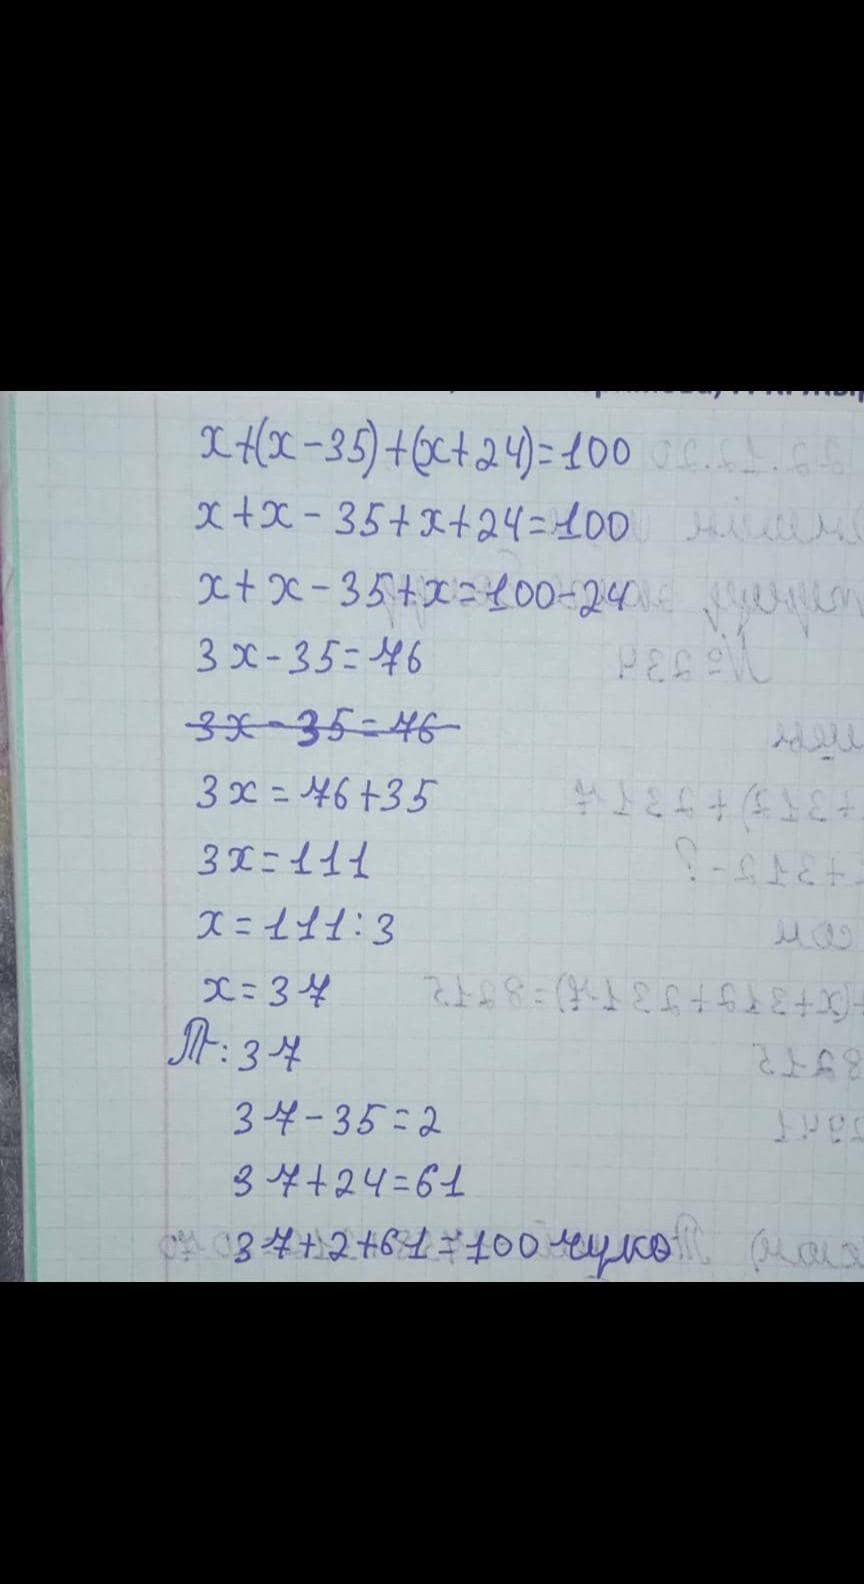 x+(x-35)+(x+24)=100
x+x-35+x+24=100
x+x-35+x=100-24
3x-35=76
3x-35=76
3x=76+35
3x=111
x=111:3
x=37
Т: 37
37-35=2
37+24=61
37+2+61=100 чуко